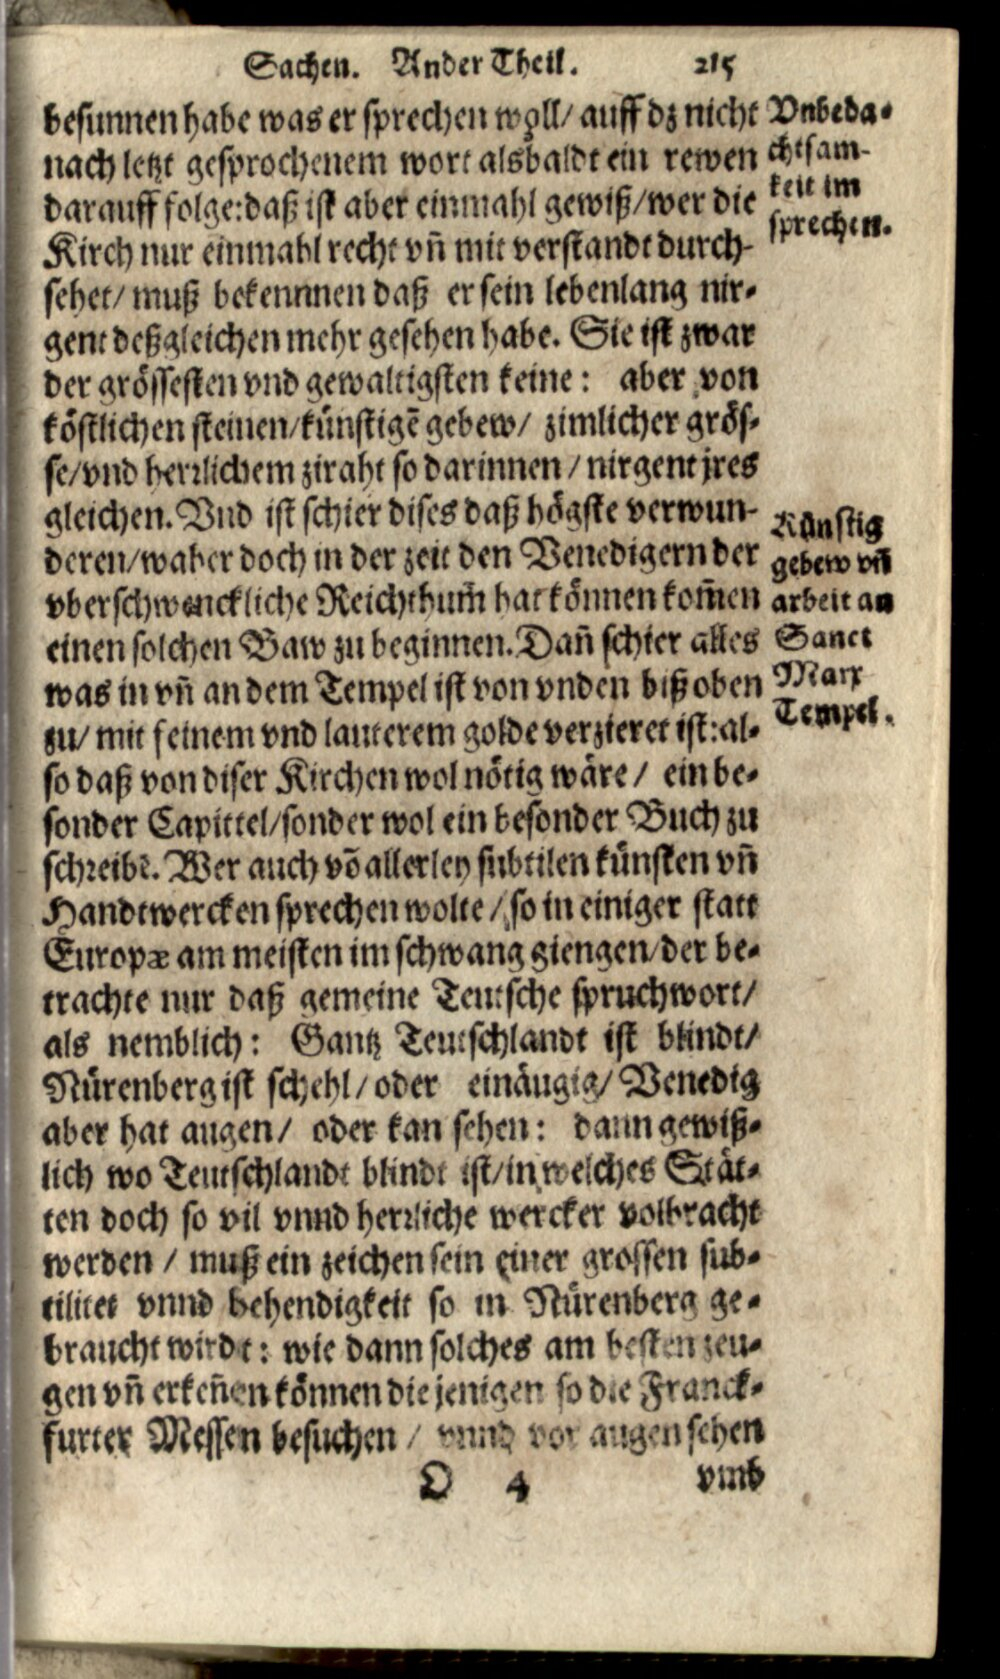 Sachen. Ander Theil. 215
besunnen habe was er sprechen wöll/ auff dz nicht
nach letzt gesprochenem wort alsbaldt ein rewen
darauff folge: daß ist aber einmahl gewiß/ wer die
Kirch nur einmahl recht vñ mit verstandt durch-
sehet/ muß bekennnen daß er sein lebenlang nir-
gent deßgleichen mehr gesehen habe. Sie ist zwar
der grössesten vnd gewaltigsten keine: aber von
köstlichen steinen/ künstigē gebew/ zimlicher grös-
se/ vnd herrlichem ziraht so darinnen / nirgent jres
gleichen. Vnd ist schier dises daß högste verwun-
deren/ waher doch in der zeit den Venedigern der
vberschwenckliche Reichthum̃ hat können kom̃en
einen solchen Baw zu beginnen. Dañ schier alles
was in vñ an dem Tempel ist von vnden biß oben
zu/ mit feinem vnd lauterem golde verzieret ist: al-
so daß von diser Kirchen wol nötig wäre / ein be-
sonder Capittel/ sonder wol ein besonder Buch zu
schreibē. Wer auch vō allerley subtilen künsten vñ
Handtwercken sprechen wolte / so in einiger statt
Europæ am meisten im schwang giengen/ der be-
trachte nur daß gemeine Teutsche spruchwort/
als nemblich: Gantz Teutschlandt ist blindt/
Nürenberg ist schehl/ oder einäugig/ Venedig
aber hat augen/ oder kan sehen: dann gewiß-
lich wo Teutschlandt blindt ist/ in welches Stät-
ten doch so vil vnnd herrliche wercker volbracht
werden / muß ein zeichen sein einer grossen sub-
tilitet vnnd behendigkeit so in Nürenberg ge-
braucht wirdt: wie dann solches am besten zeu-
gen vñ erkeñen können die jenigen so die Franck-
furter Messen besuchen / vnnd vor augen sehen
O 4 vmb
Vnbeda-
chtsam-
keit im
sprechen.
Künstig
gebew vñ
arbeit an
Sanct
Marx
Tempel.